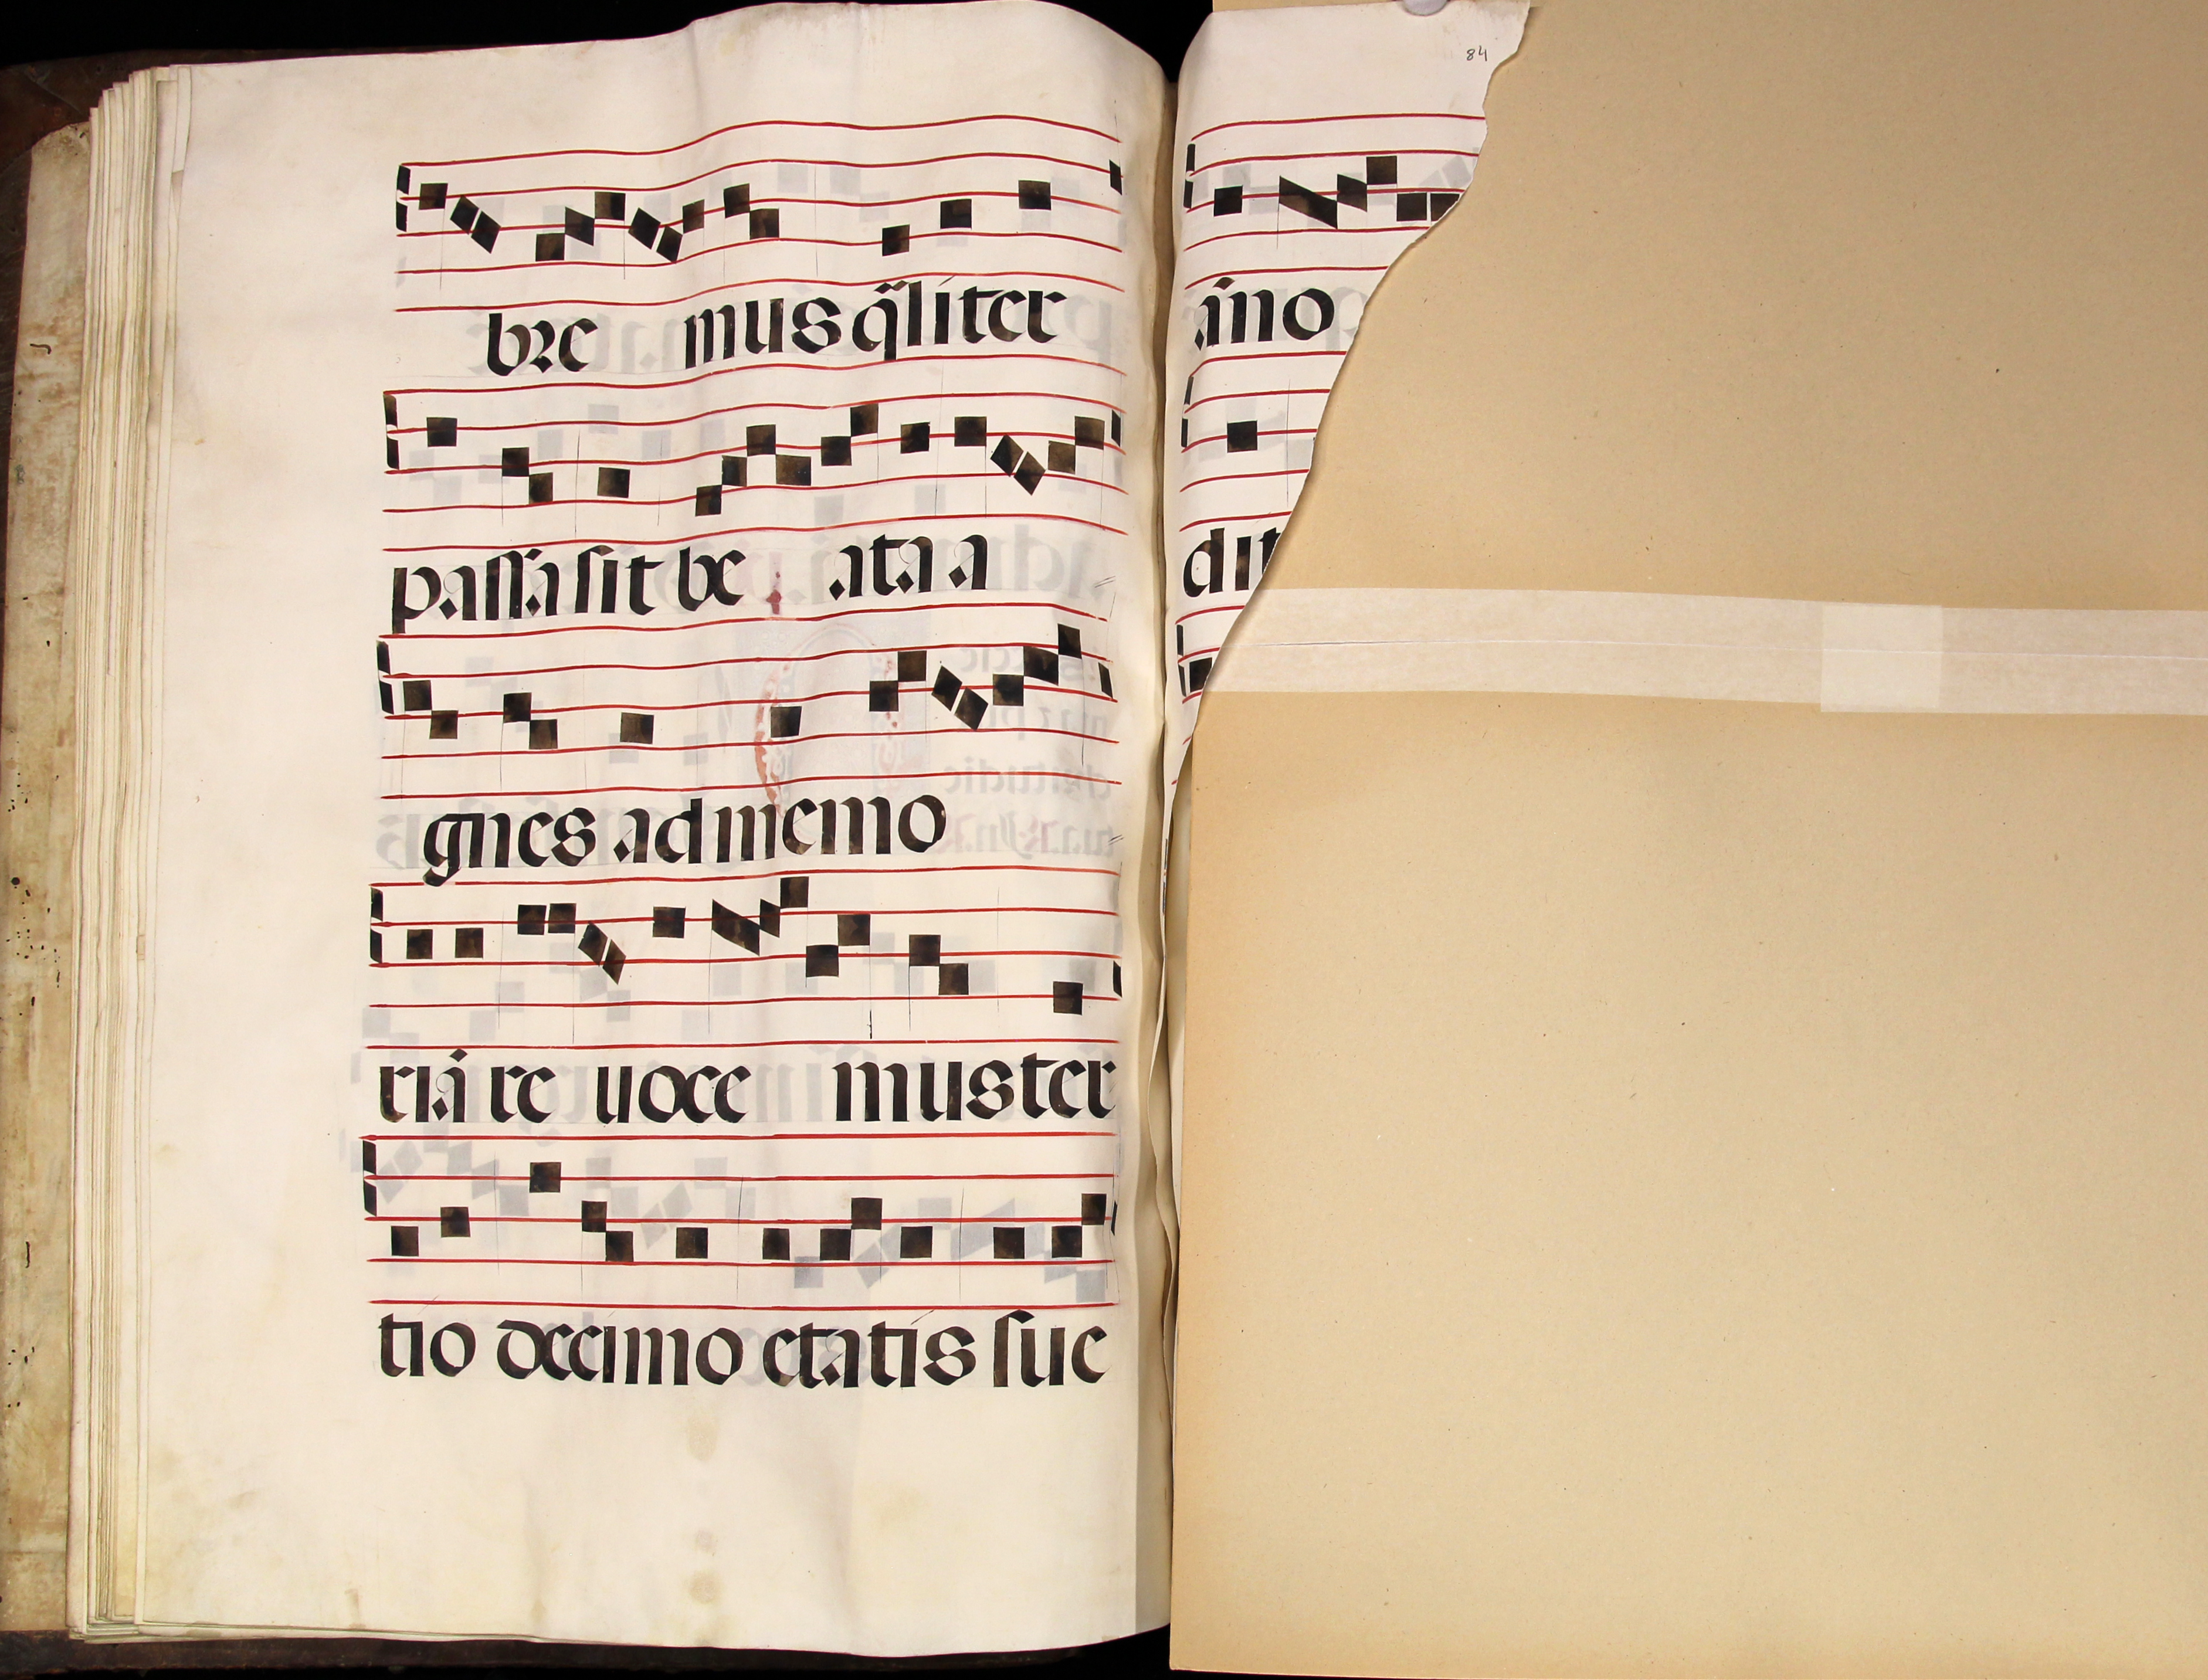 bre mus q̃liter
passa sit be ata a
gnes ad memo
riã re uoce mus ter
tio decimo etatis sue
84
ãno
dit